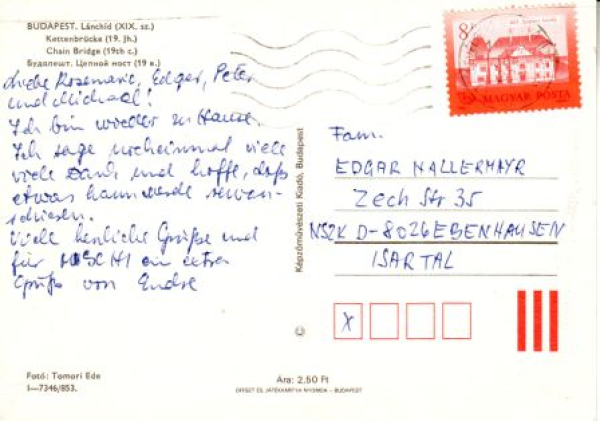 BUDAPEST. Lánchíd (XIX. sz.)
Kettenbrücke (19. Jh.)
Chain Bridge (19th c.)
Будапешт. Цепной мост (19 в.)
Liebe Rosemarie, Edgar, Peter
und Michael!
Ich bin wieder zu Hause.
Ich sage nocheinmal viele
viele Dank und hoffe, daß
etwas kann werde revan-
schieren.
Viele herzliche Grüße und
für ein
Gruß von Endre
Fotó: Tomori Ede
I—7346/853.
Képzőművészeti Kiadó, Budapest
Ára: 2,50 Ft
OFFSET ÉS JÁTÉKKÁRTYA NYOMDA — BUDAPEST
8
MAGYAR POSTA
Fam.
EDGAR HALLERMAYR
Zech Str 35
NSZK D-8026 EBENHAUSEN
ISARTAL
X